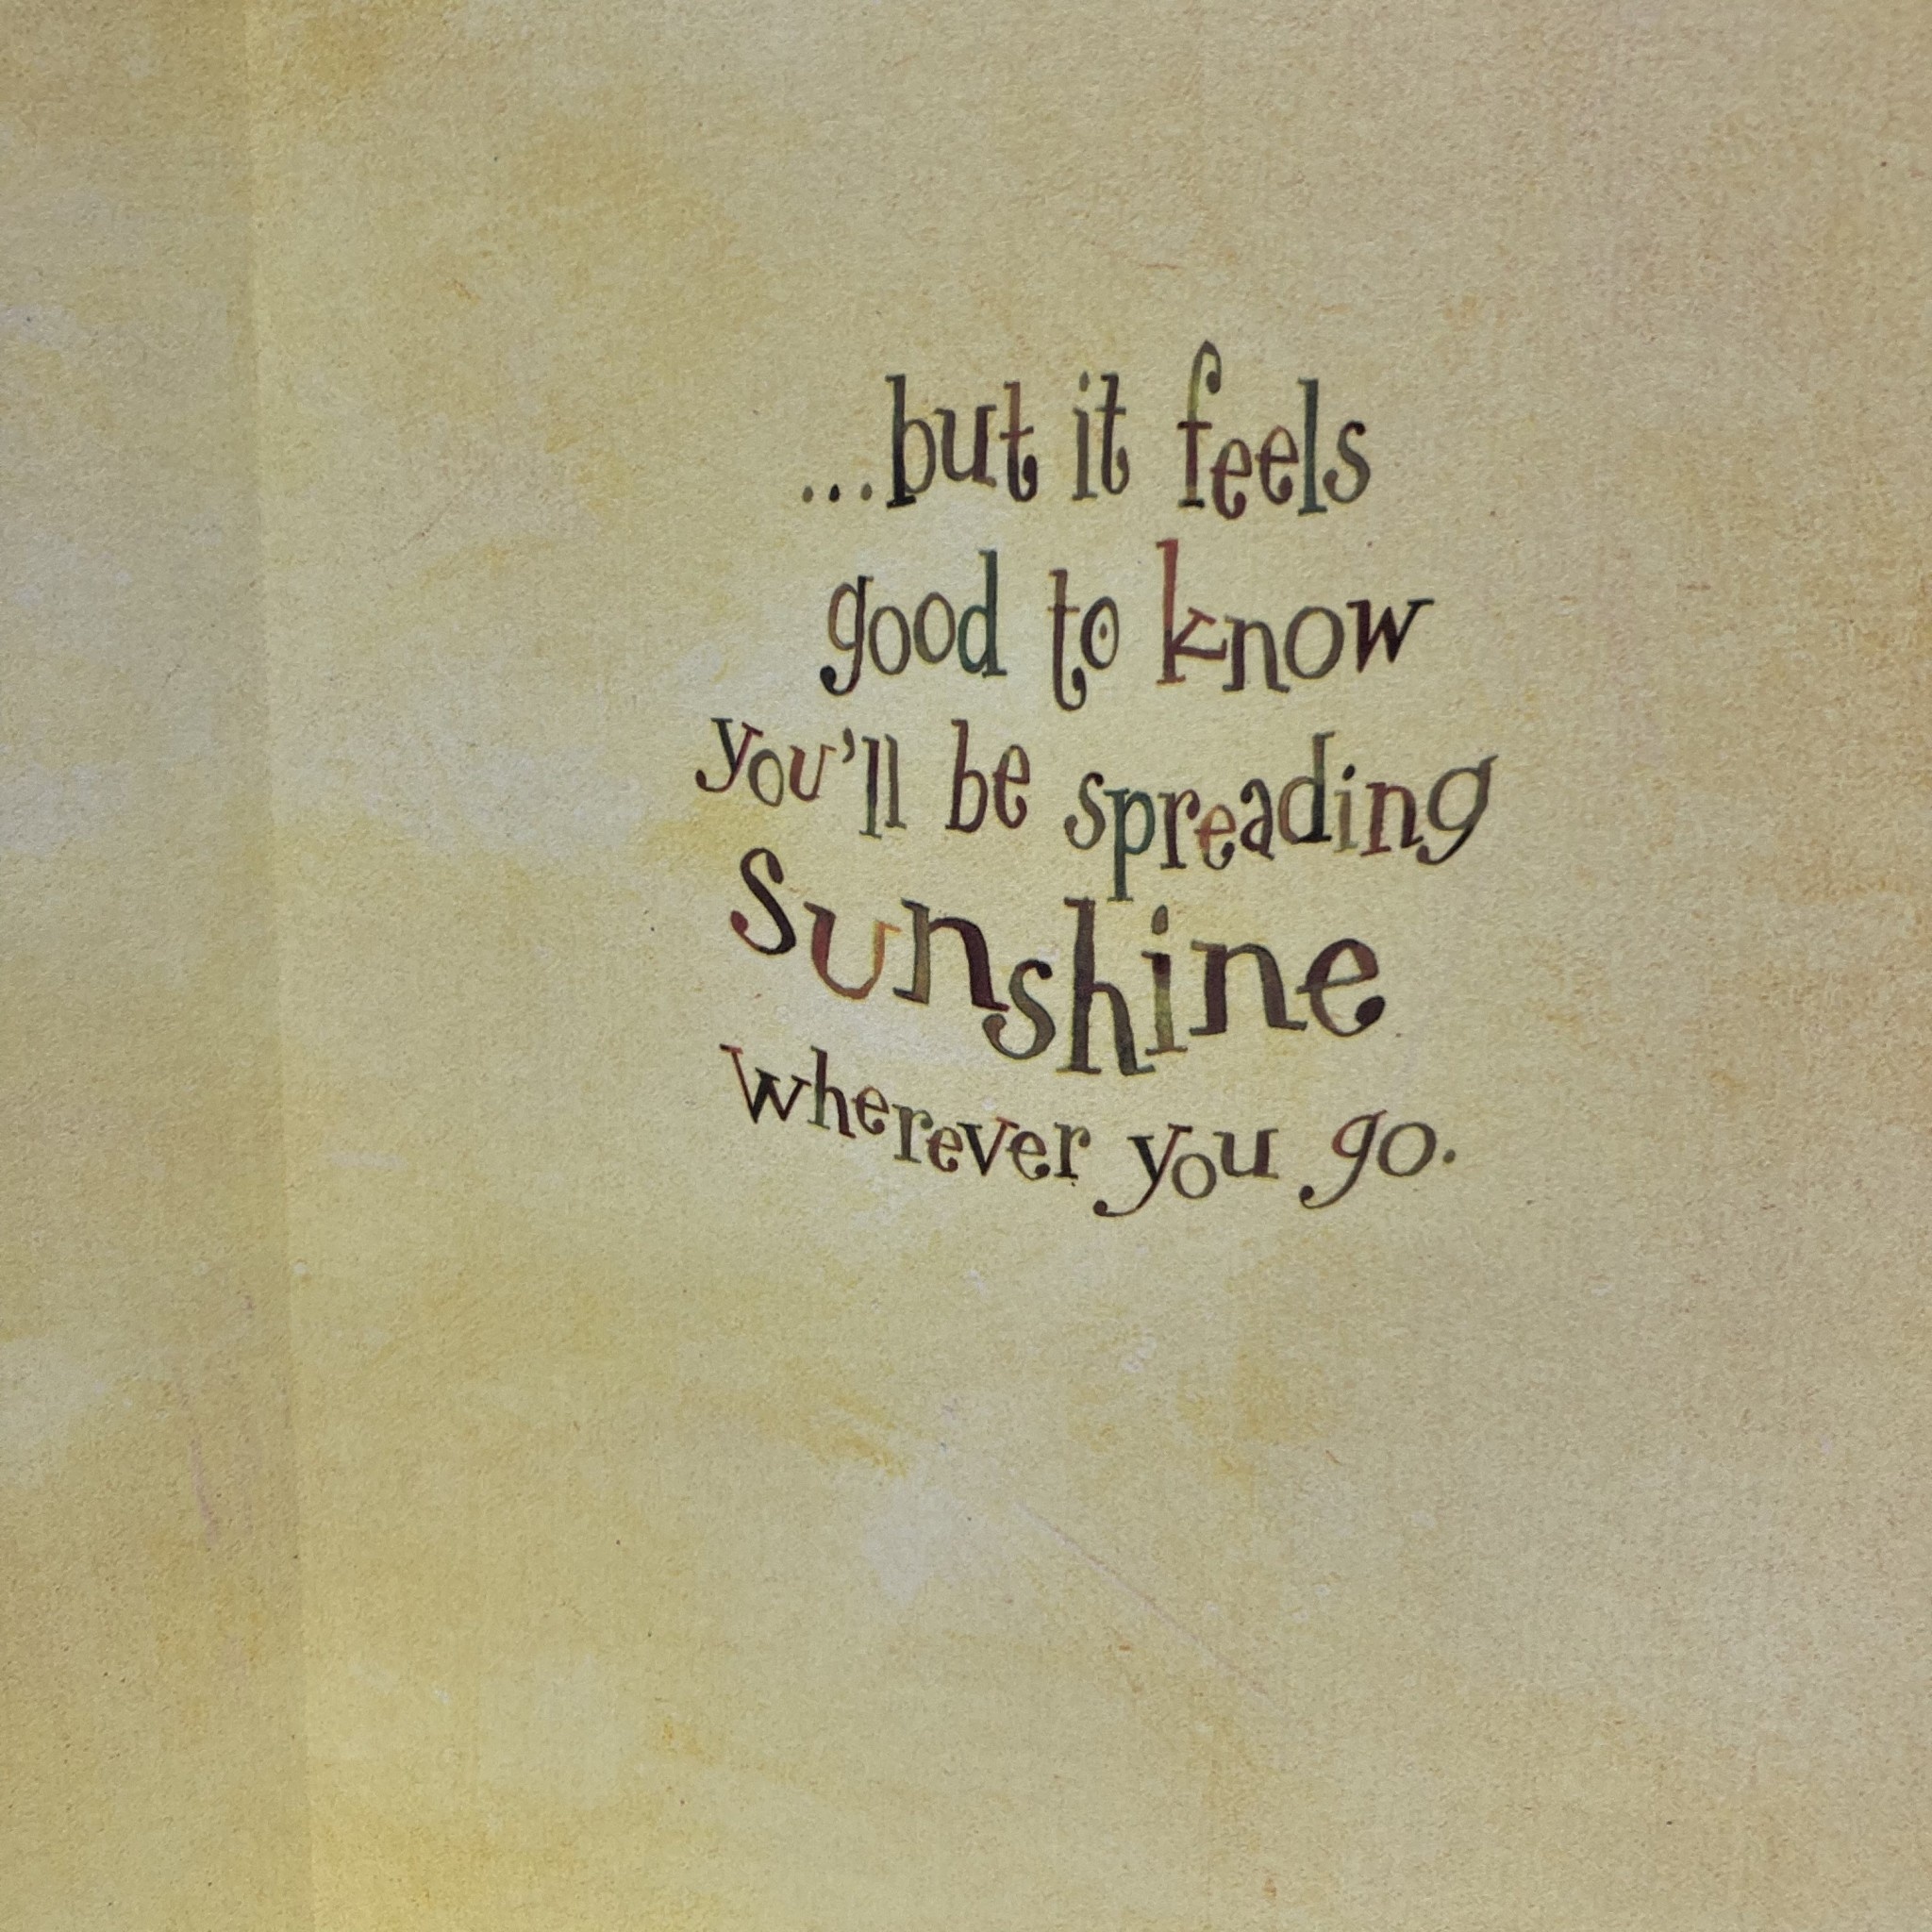 ...but it feels
good to know
you'll be spreading
sunshine
wherever you go.